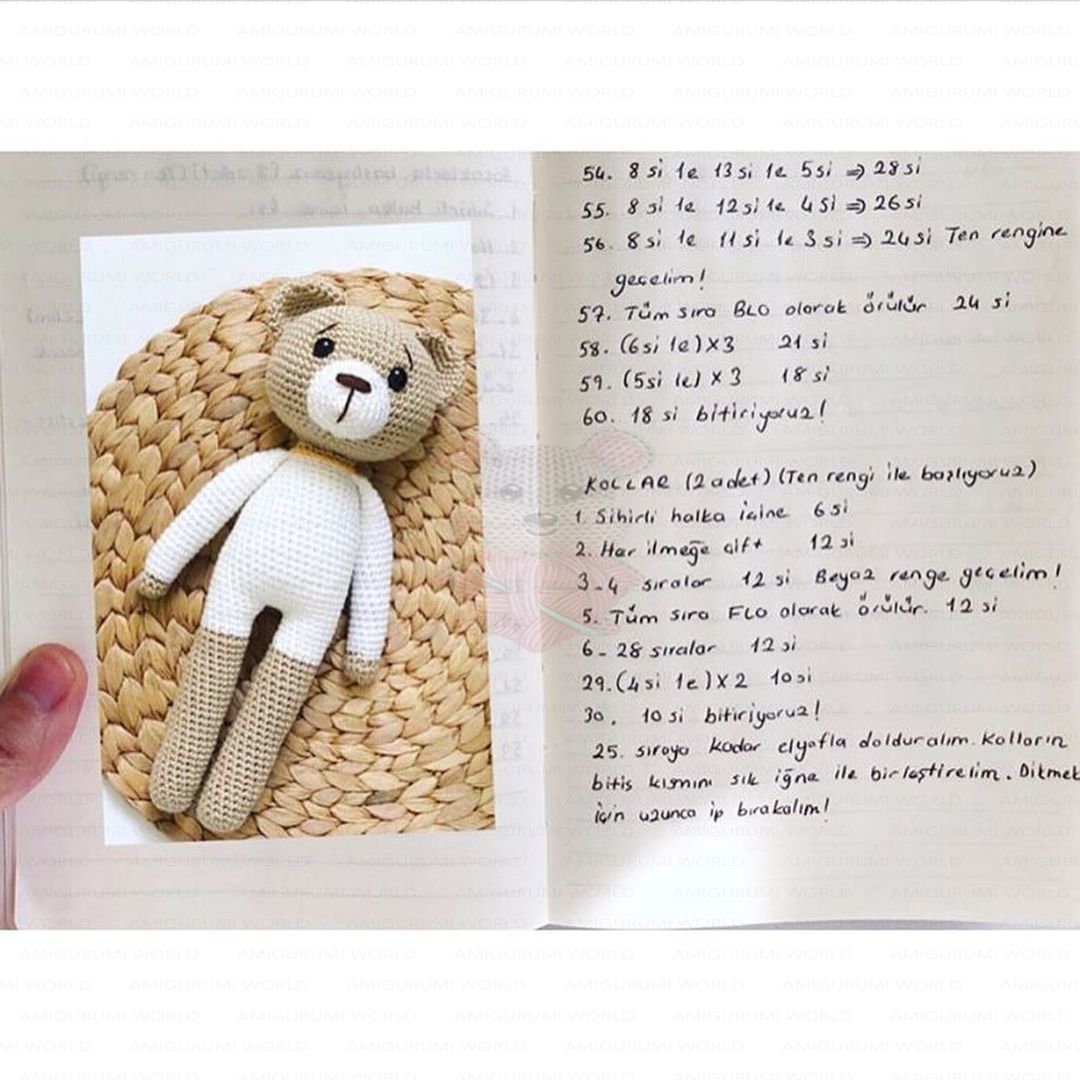 54. 8 si 1e 13 si 1e 5si => 28 si
55. 8 si 1e 12 si 1e 4 si => 26 si
56. 8 si 1e 11 si 1e 3 si => 24 si Ten rengine
geçelim!
57. Tüm sıra BLO olarak örülür 24 si
58. (6si 1e)x3 21 si
59. (5si 1e) x 3 18 si
60. 18 si bitiriyoruz!
KOLLAR (2 adet) (Ten rengi ile başlıyoruz)
1. Sihirli halka içine 6 si
2. Her ilmeğe çift 12 si
3-4 sıralar 12 si Beyaz renge geçelim!
5. Tüm sıra FLO olarak örülür. 12 si
6-28 sıralar 12 si
29. (4 si 1e) X 2 10 si
30. 10 si bitiriyoruz!
25. sıraya kadar elyafla dolduralım. Kolların
bitiş kısmını sık iğne ile birleştirelim. Dikmek
için uzunca ip bırakalım!
AMIGURUMI WORLD